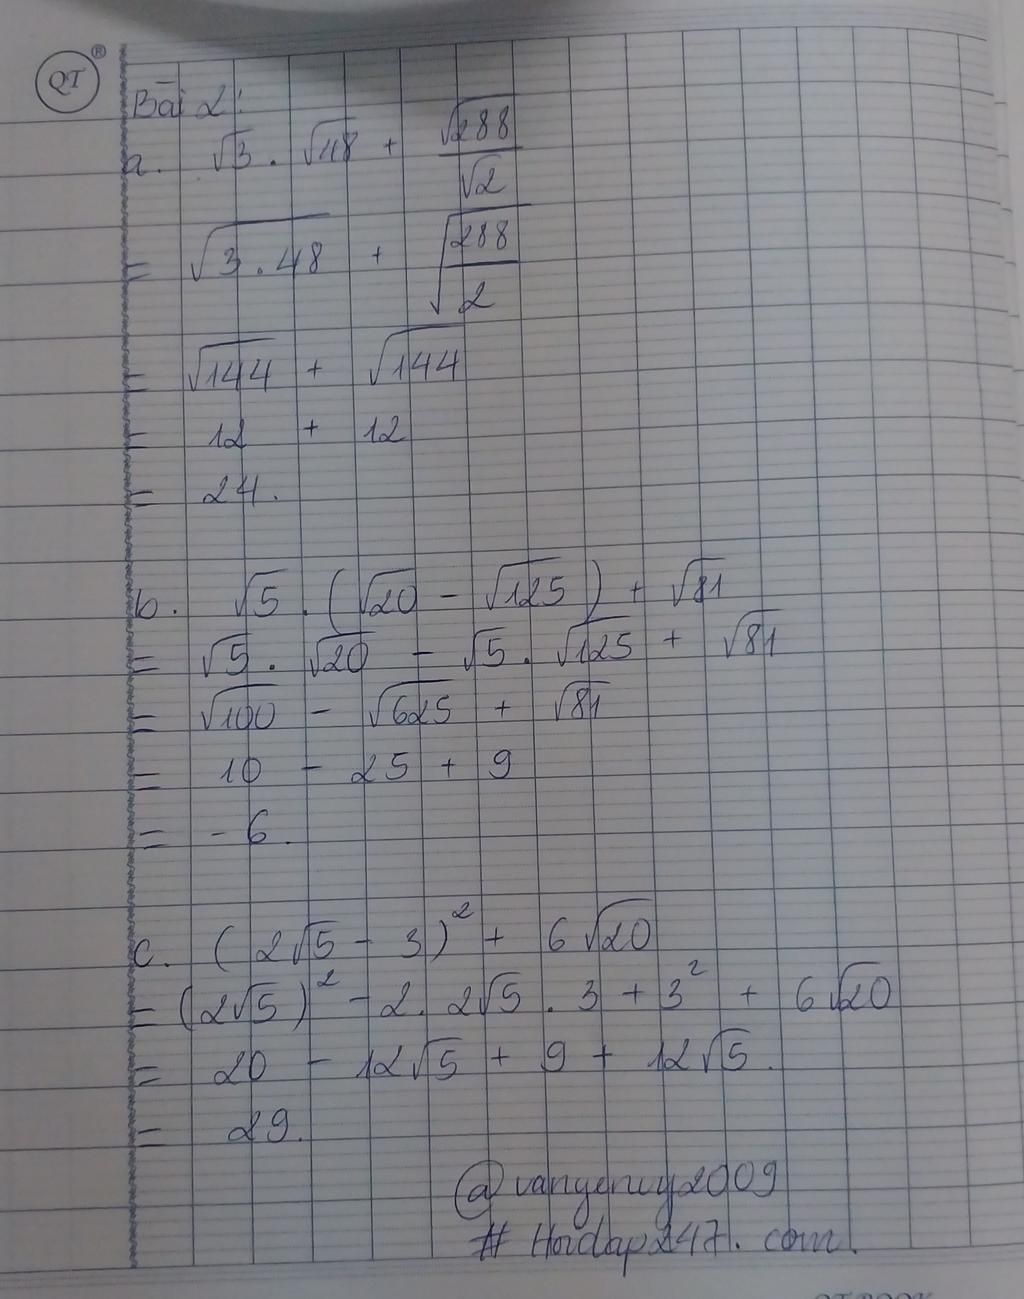 QT ®
Bài 2:
a. √3 . √48 + √288/√2
= √(3 . 48) + √(288/2)
= √144 + √144
= 12 + 12
= 24.
b. √5 . (√20 - √125) + √81
= √5 . √20 - √5 . √125 + √81
= √100 - √625 + √81
= 10 - 25 + 9
= -6.
c. (2√5 - 3)² + 6√20
= (2√5)² - 2. 2√5 . 3 + 3² + 6√20
= 20 - 12√5 + 9 + 12√5.
= 29.
# Hoidap247. com.